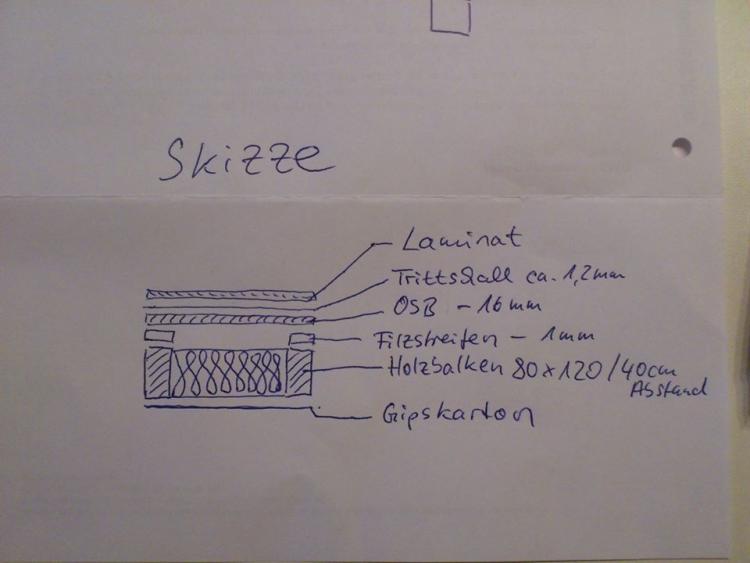 Skizze
Laminat
Trittschall ca. 1,2mm
OSB - 16mm
Filzstreifen - 1mm
Holzbalken 80x120/40cm
Abstand
Gipskarton